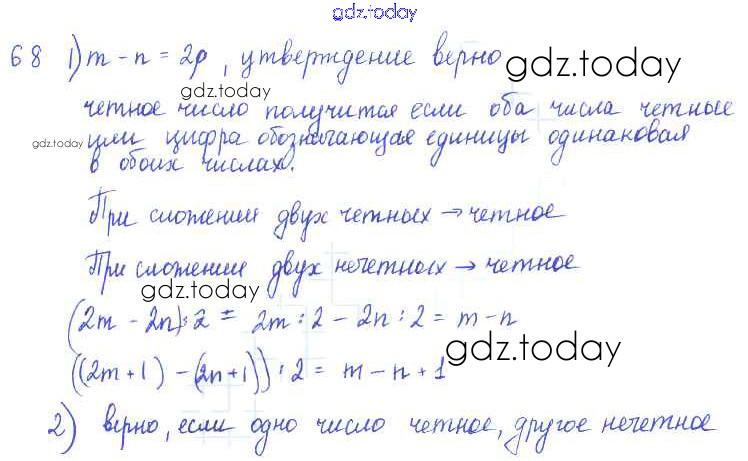 gdz.today
68 1) m - n = 2p, утверждение верно
gdz.today
gdz.today
четное число получится если оба числа четные
gdz.today
или цифра обозначающая единицы одинаковая
в обоих числах.
При сложении двух четных → четное
При сложении двух нечетных → четное
gdz.today
(2m - 2n) : 2 = 2m : 2 - 2n : 2 = m - n
gdz.today
((2m + 1) - (2n + 1)) : 2 = m - n + 1
2) верно, если одно число четное, другое нечетное